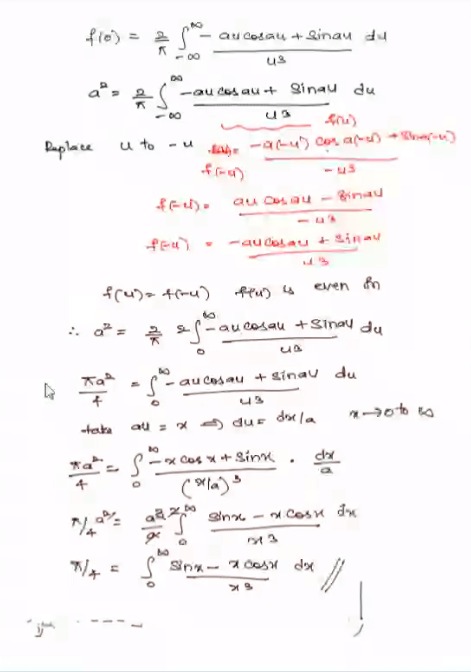 f(0) = 2/π ∫_{-∞}^{∞} (-au cosau + sinau)/u3 du
a² = 2/π ∫_{-∞}^{∞} (-au cosau + sinau)/u3 du
f(u)
Replace u to -u f(-u) = (-a(-u) cos a(-u) + sina(-u))/-u3
f(-u)
f(-u) = (au cosau - sinau)/-u3
f(-u) = (-au cosau + sinau)/u3
f(u) = f(-u) f(u) is even fn
∴ a² = 2/π 2∫_0^∞ (-au cosau + sinau)/u3 du
πa²/4 = ∫_0^∞ (-au cosau + sinau)/u3 du
take au = x ⇒ du = dx/a x→0 to ∞
πa²/4 = ∫_0^∞ (-x cosx + sinx)/(x/a)³ · dx/a
π/4 a² = a³/a ∫_0^∞ (sinx - x cosx)/x3 dx
π/4 = ∫_0^∞ (sinx - x cosx)/x3 dx //